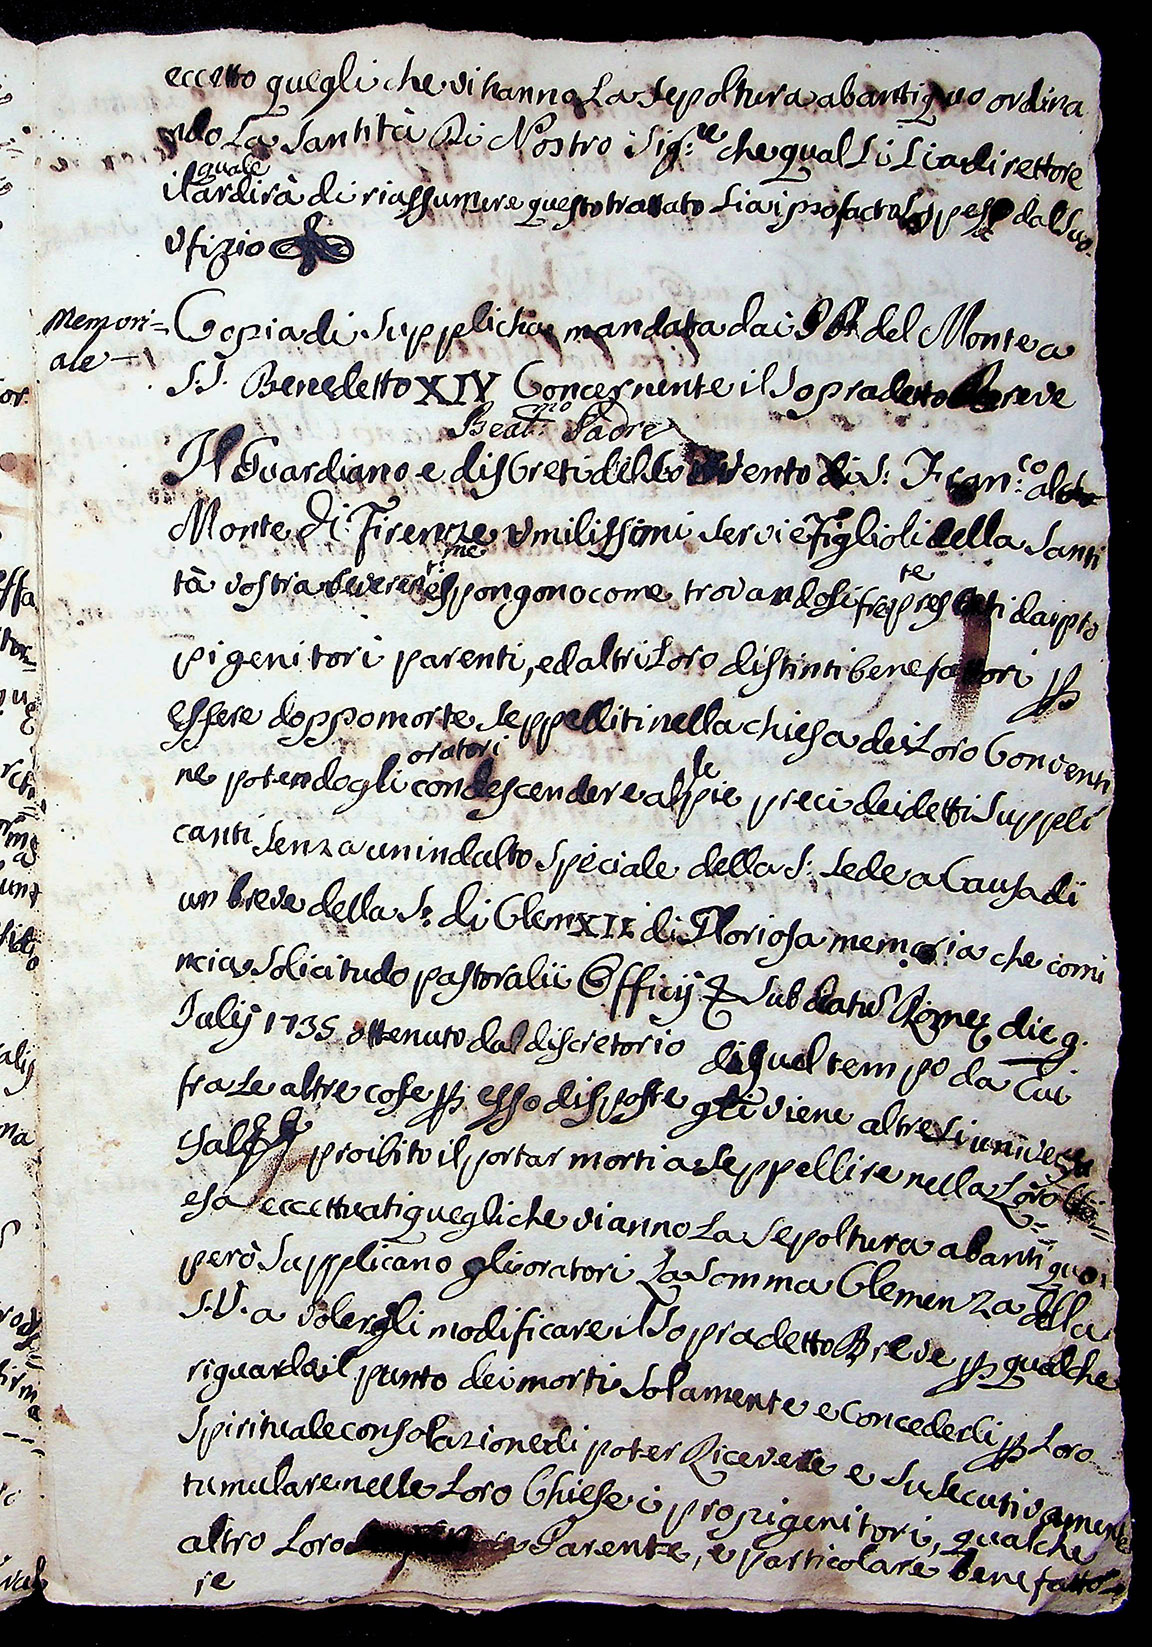 eccetto quegli che vi hanno La Sepoltura ab antiquo ordina
ndo La Santità Di Nostro Sig:re che qual Si Sia direttore
quale
il ardirà di riassumere questo trattato Sia ipso facto dal Suo
Ufizio
Memori=
ale
Copia di Supplicha mandata dai PP. del Monte a
S.S. Benedetto XIV Concernente il Sopradetto Breve
Beat:mo Padre
Il Guardiano e discreti del Convento di S: Fran:co al
Monte di Firenze umilissimi Servi e Figlioli della Santi
tà vostra Reverente:me espongono come trovandosi freq:te pregati dai pro
pigenitori parenti, ed altri Loro distinti benefattori p
essere doppo morte Seppelliti nella chiesa dei Loro Conventi
oratori
ne potendo gli condescendere alle pie preci dei detti Suppli
canti Senza un indulto Speciale della S: Sede a Causa di
un breve della S: di Clem XII di Gloriosa memoria che comi
ncia Solicitudo pastoralii Officij & Sub datu Rome die 9.
Julij 1735 ottenuto dal discretorio di quel tempo da Cui
fra Le altre cose p esso disposte gli viene altresi univer
proibito il portar morti a Seppellire nella Loro Chi=
esa eccettuati quegli che vi anno La Sepoltura ab antiquo
però Supplicano gli oratori La Somma Clemenza della
S.V. a volergli modificare il Sopradetto Breve p qualche
riguarda il punto dei morti Solamente e Concederli p Loro
Spirituale consolazione di poter Ricevere e Sulecutivamente
tumulare nelle Loro Chiese i propigenitori, qualche
altro Loro Parente, e particolare benefatto
re